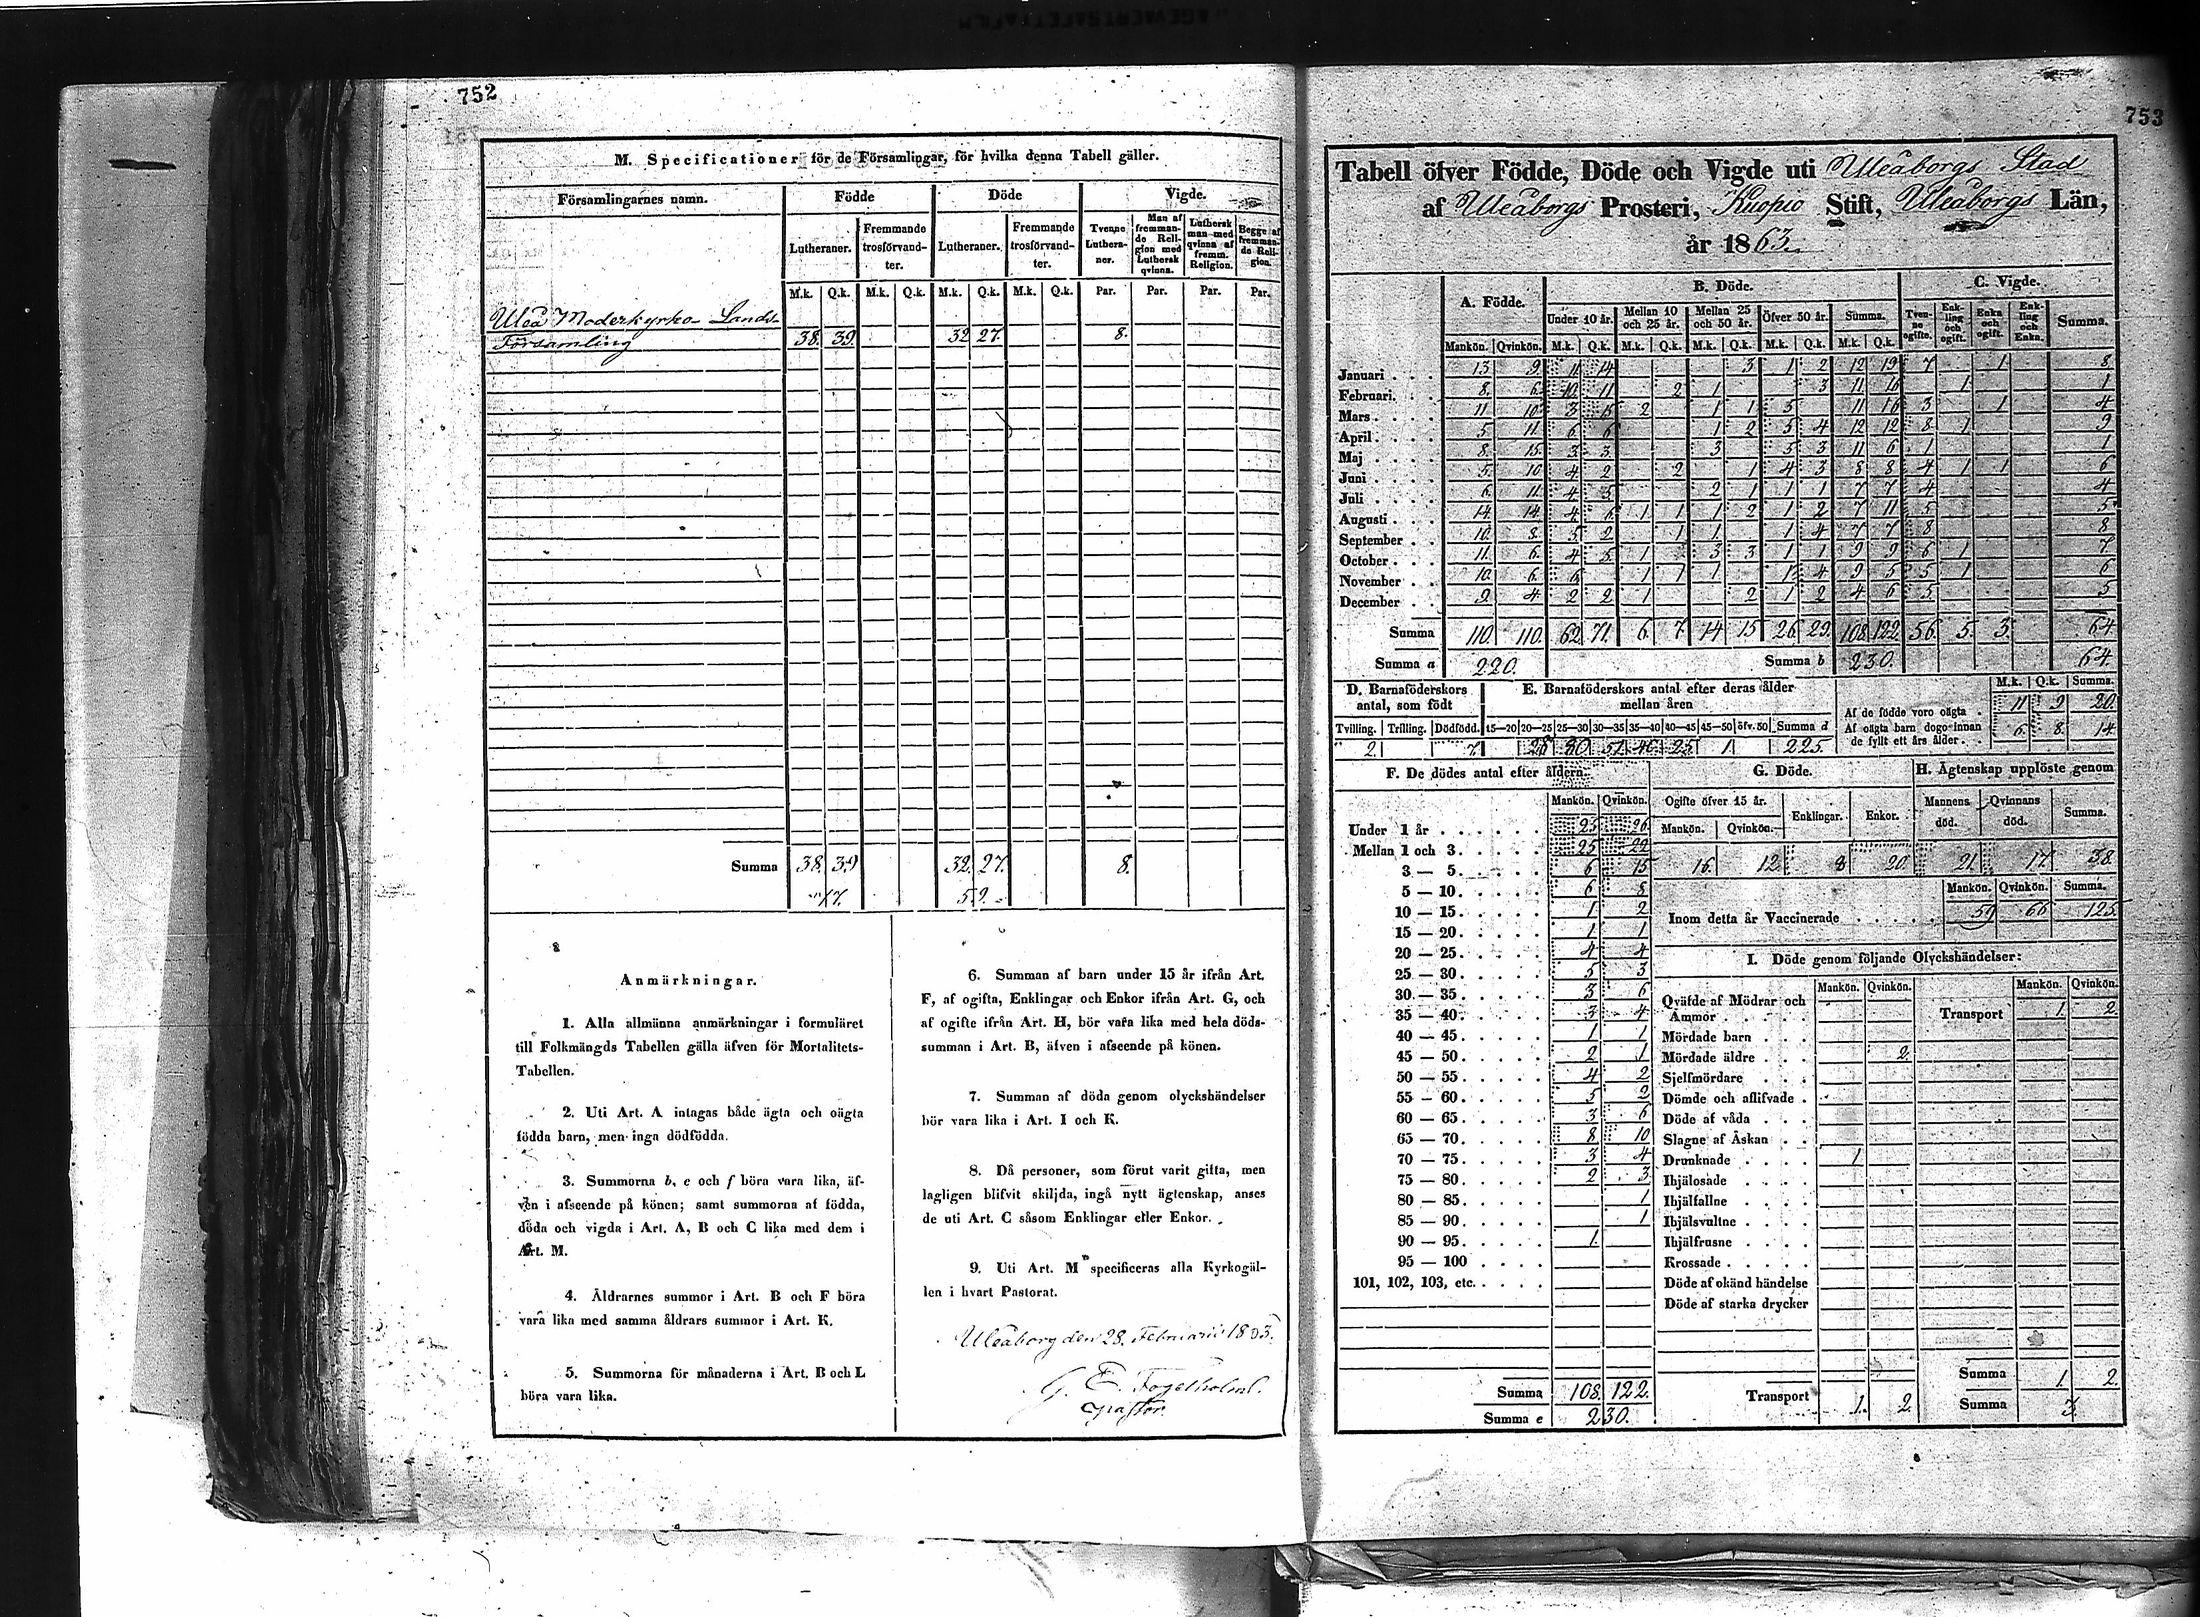 752
M. Specificationer för de Församlingar, för hvilka denna Tabell gäller.
Församlingarnes namn. Födde Döde Vigde.
Lutheraner. Fremmande trosförvandter. Lutheraner. Fremmande trosförvandter. Tvenne Lutheraner. Man af fremmande Religion med Luthersk qvinna. Luthersk man med qvinna af fremm. Religion. Begge af fremmande Religion.
M.k. Q.k. M.k. Q.k. M.k. Q.k. M.k. Q.k. Par. Par. Par. Par.
Uleå Moderkyrko Lands-
Församling 38. 39. 32 27. 8.
Summa 38. 39 32. 27. 8.
77. 59.
Anmärkningar.
1. Alla allmänna anmärkningar i formuläret
till Folkmängds Tabellen gälla äfven för Mortalitets-
Tabellen.
2. Uti Art. A intagas både ägta och oägta
födda barn, men inga dödfödda.
3. Summorna b, e och f böra vara lika, äf-
ven i afseende på könen; samt summorna af födda,
döda och vigda i Art. A, B och C lika med dem i
Art. M.
4. Åldrarnes summor i Art. B och F böra
vara lika med samma åldrars summor i Art. K.
5. Summorna för månaderna i Art. B och L
böra vara lika.
6. Summan af barn under 15 år ifrån Art.
F, af ogifta, Enklingar och Enkor ifrån Art. G, och
af ogifte ifrån Art. H, bör vara lika med hela döds-
summan i Art. B, äfven i afseende på könen.
7. Summan af döda genom olyckshändelser
bör vara lika i Art. I och K.
8. Då personer, som förut varit gifta, men
lagligen blifvit skiljda, ingå nytt ägtenskap, anses
de uti Art. C såsom Enklingar eller Enkor.
9. Uti Art. M specificeras alla Kyrkogäl-
len i hvart Pastorat.
Uleåborg den 28. Februarii
G. E. Fogelholm.
pastor.
753
Tabell öfver Födde, Döde och Vigde uti Uleåborgs Stad
af Uleåborgs Prosteri, Kuopio Stift, Uleåborgs Län,
år 1863.
A. Födde. B. Döde. C. Vigde.
Under 10 år. Mellan 10 och 25 år. Mellan 25 och 50 år. Öfver 50 år. Summa. Tvenne ogifte. Enkling och ogift. Enka och ogift. Enkling och Enka. Summa.
Mankön. Qvinkön. M.k. Q.k. M.k. Q.k. M.k. Q.k. M.k. Q.k. M.k. Q.k.
Januari 13 9 11 14 3 1 2 12 19 7 1 8
Februari 8 6 10 11 2 1 3 11 16 1 1
Mars 11 10 3 15 2 1 1 5 11 16 3 1 4
April 5 11 6 6 1 2 5 4 12 12 8 1 9
Maj 8 15 3 3 3 5 3 11 6 1 1
Juni 5 10 4 2 2 1 4 3 8 8 4 1 1 6
Juli 6 11 4 5 2 1 1 1 7 7 4 4
Augusti 14 14 4 6 1 1 1 2 1 2 7 11 5 5
September 10 8 5 2 1 1 1 4 7 7 8 8
October 11 6 4 5 1 3 3 1 1 9 9 6 1 7
November 10 6 6 1 1 1 1 4 9 5 5 1 6
December 9 4 2 2 1 2 1 2 4 6 5 5
Summa 110. 110. 62 71 6 7 14 15 26 29 108 122 56 5 3 64
Summa a 220. Summa b 230. 64.
D. Barnaföderskors antal, som födt E. Barnaföderskors antal efter deras ålder mellan åren M.k. Q.k. Summa.
Tvilling. Trilling. Dödfödd. 15—20 20—25 25—30 30—35 35—40 40—45 45—50 öfv. 50 Summa d
2 7 1 225
Af de födde voro oägta 11 9 20.
Af oägta barn dogo innan
de fyllt ett års ålder 6 8. 14.
F. De dödes antal efter åldern.
Mankön. Qvinkön.
Under 1 år 25 26
Mellan 1 och 3 25 22
3 — 5 6 15
5 — 10 6 8
10 — 15 1 2
15 — 20 1 1
20 — 25 4 4
25 — 30 5 3
30 — 35 3 6
35 — 40 3 4
40 — 45 1 1
45 — 50 2 1
50 — 55 4 2
55 — 60 5 2
60 — 65 3 6
65 — 70 8 10
70 — 75 3 4
75 — 80 2 3
80 — 85 1
85 — 90 1
90 — 95 1
95 — 100
101, 102, 103, etc.
Summa 108. 122.
Summa e 230.
G. Döde. H. Ägtenskap upplöste genom
Ogifte öfver 15 år. Enklingar. Enkor. Mannens död. Qvinnans död. Summa.
Mankön. Qvinkön.
16. 12. 8 20 21 17 38.
Mankön. Qvinkön. Summa.
Inom detta år Vaccinerade 59 66 125
I. Döde genom följande Olyckshändelser:
Mankön. Qvinkön. Mankön. Qvinkön.
Qväfde af Mödrar och
Ammor Transport 1. 2.
Mördade barn
Mördade äldre 2.
Sjelfmördare
Dömde och aflifvade
Döde af våda
Slagne af Åskan
Drunknade 1
Ihjälosade
Ihjälfallne
Ihjälsvultne
Ihjälfrusne
Krossade
Döde af okänd händelse
Döde af starka drycker
Summa 1. 2.
Transport 1. 2. Summa 3.